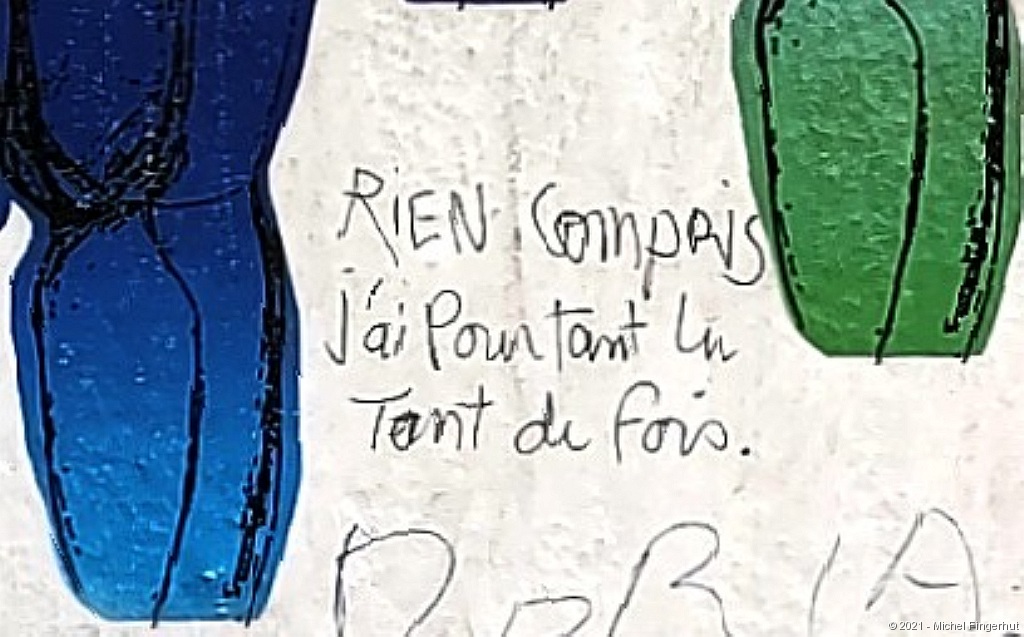 RiEN COMPRIS
J'ai Pourtant lu
Tant de fois.
© 2021 - Michel Fingerhut